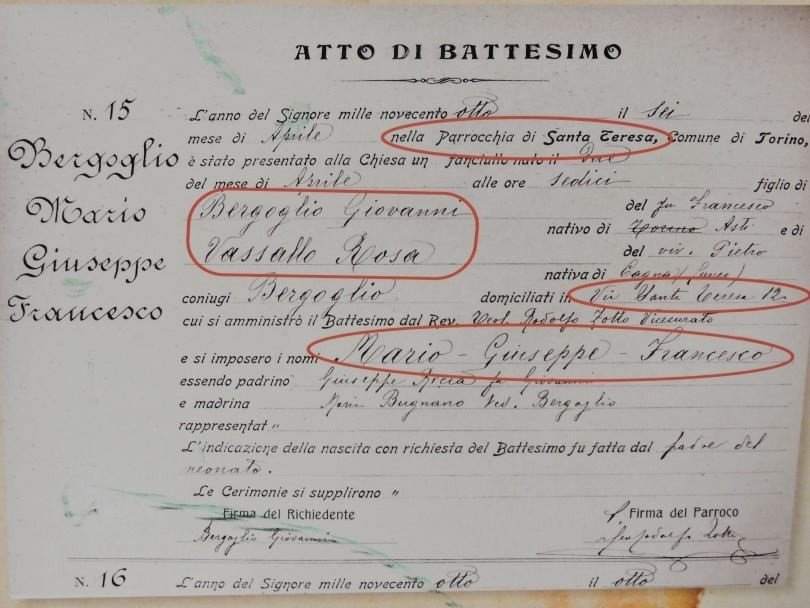 ATTO DI BATTESIMO
N. 15
Bergoglio
Mario
Giuseppe
Francesco
L'anno del Signore mille novecento otto il sei del
mese di Aprile nella Parrocchia di Santa Teresa, Comune di Torino,
è stato presentato alla Chiesa un fanciullo nato il Due
del mese di Aprile alle ore sedici figlio di
Bergoglio Giovanni del fu Francesco
nativo di Torino Asti e di
Vassallo Rosa del viv. Pietro
nativa di
coniugi Bergoglio domiciliati in Via Santa Teresa 12
cui si amministrò il Battesimo dal Rev. Rodolfo Zotto Vicecurato
e si imposero i nomi Mario - Giuseppe - Francesco
essendo padrino Giuseppe fu Giovanni
e madrina Maria Bugnano Ved. Bergoglio
rappresentat "
L'indicazione della nascita con richiesta del Battesimo fu fatta dal padre del
neonato.
Le Cerimonie si supplirono "
Firma del Richiedente Firma del Parroco
Bergoglio Giovanni
N. 16 L'anno del Signore mille novecento otto il otto del